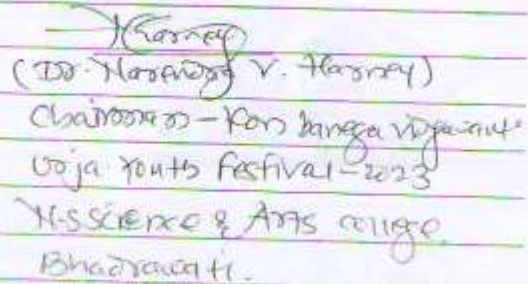 Harney
(Dr. Narendra V. Harney)
Chairman -
Urja Youth Festival-2023
N.S Science & Arts college,
Bhadrawati.